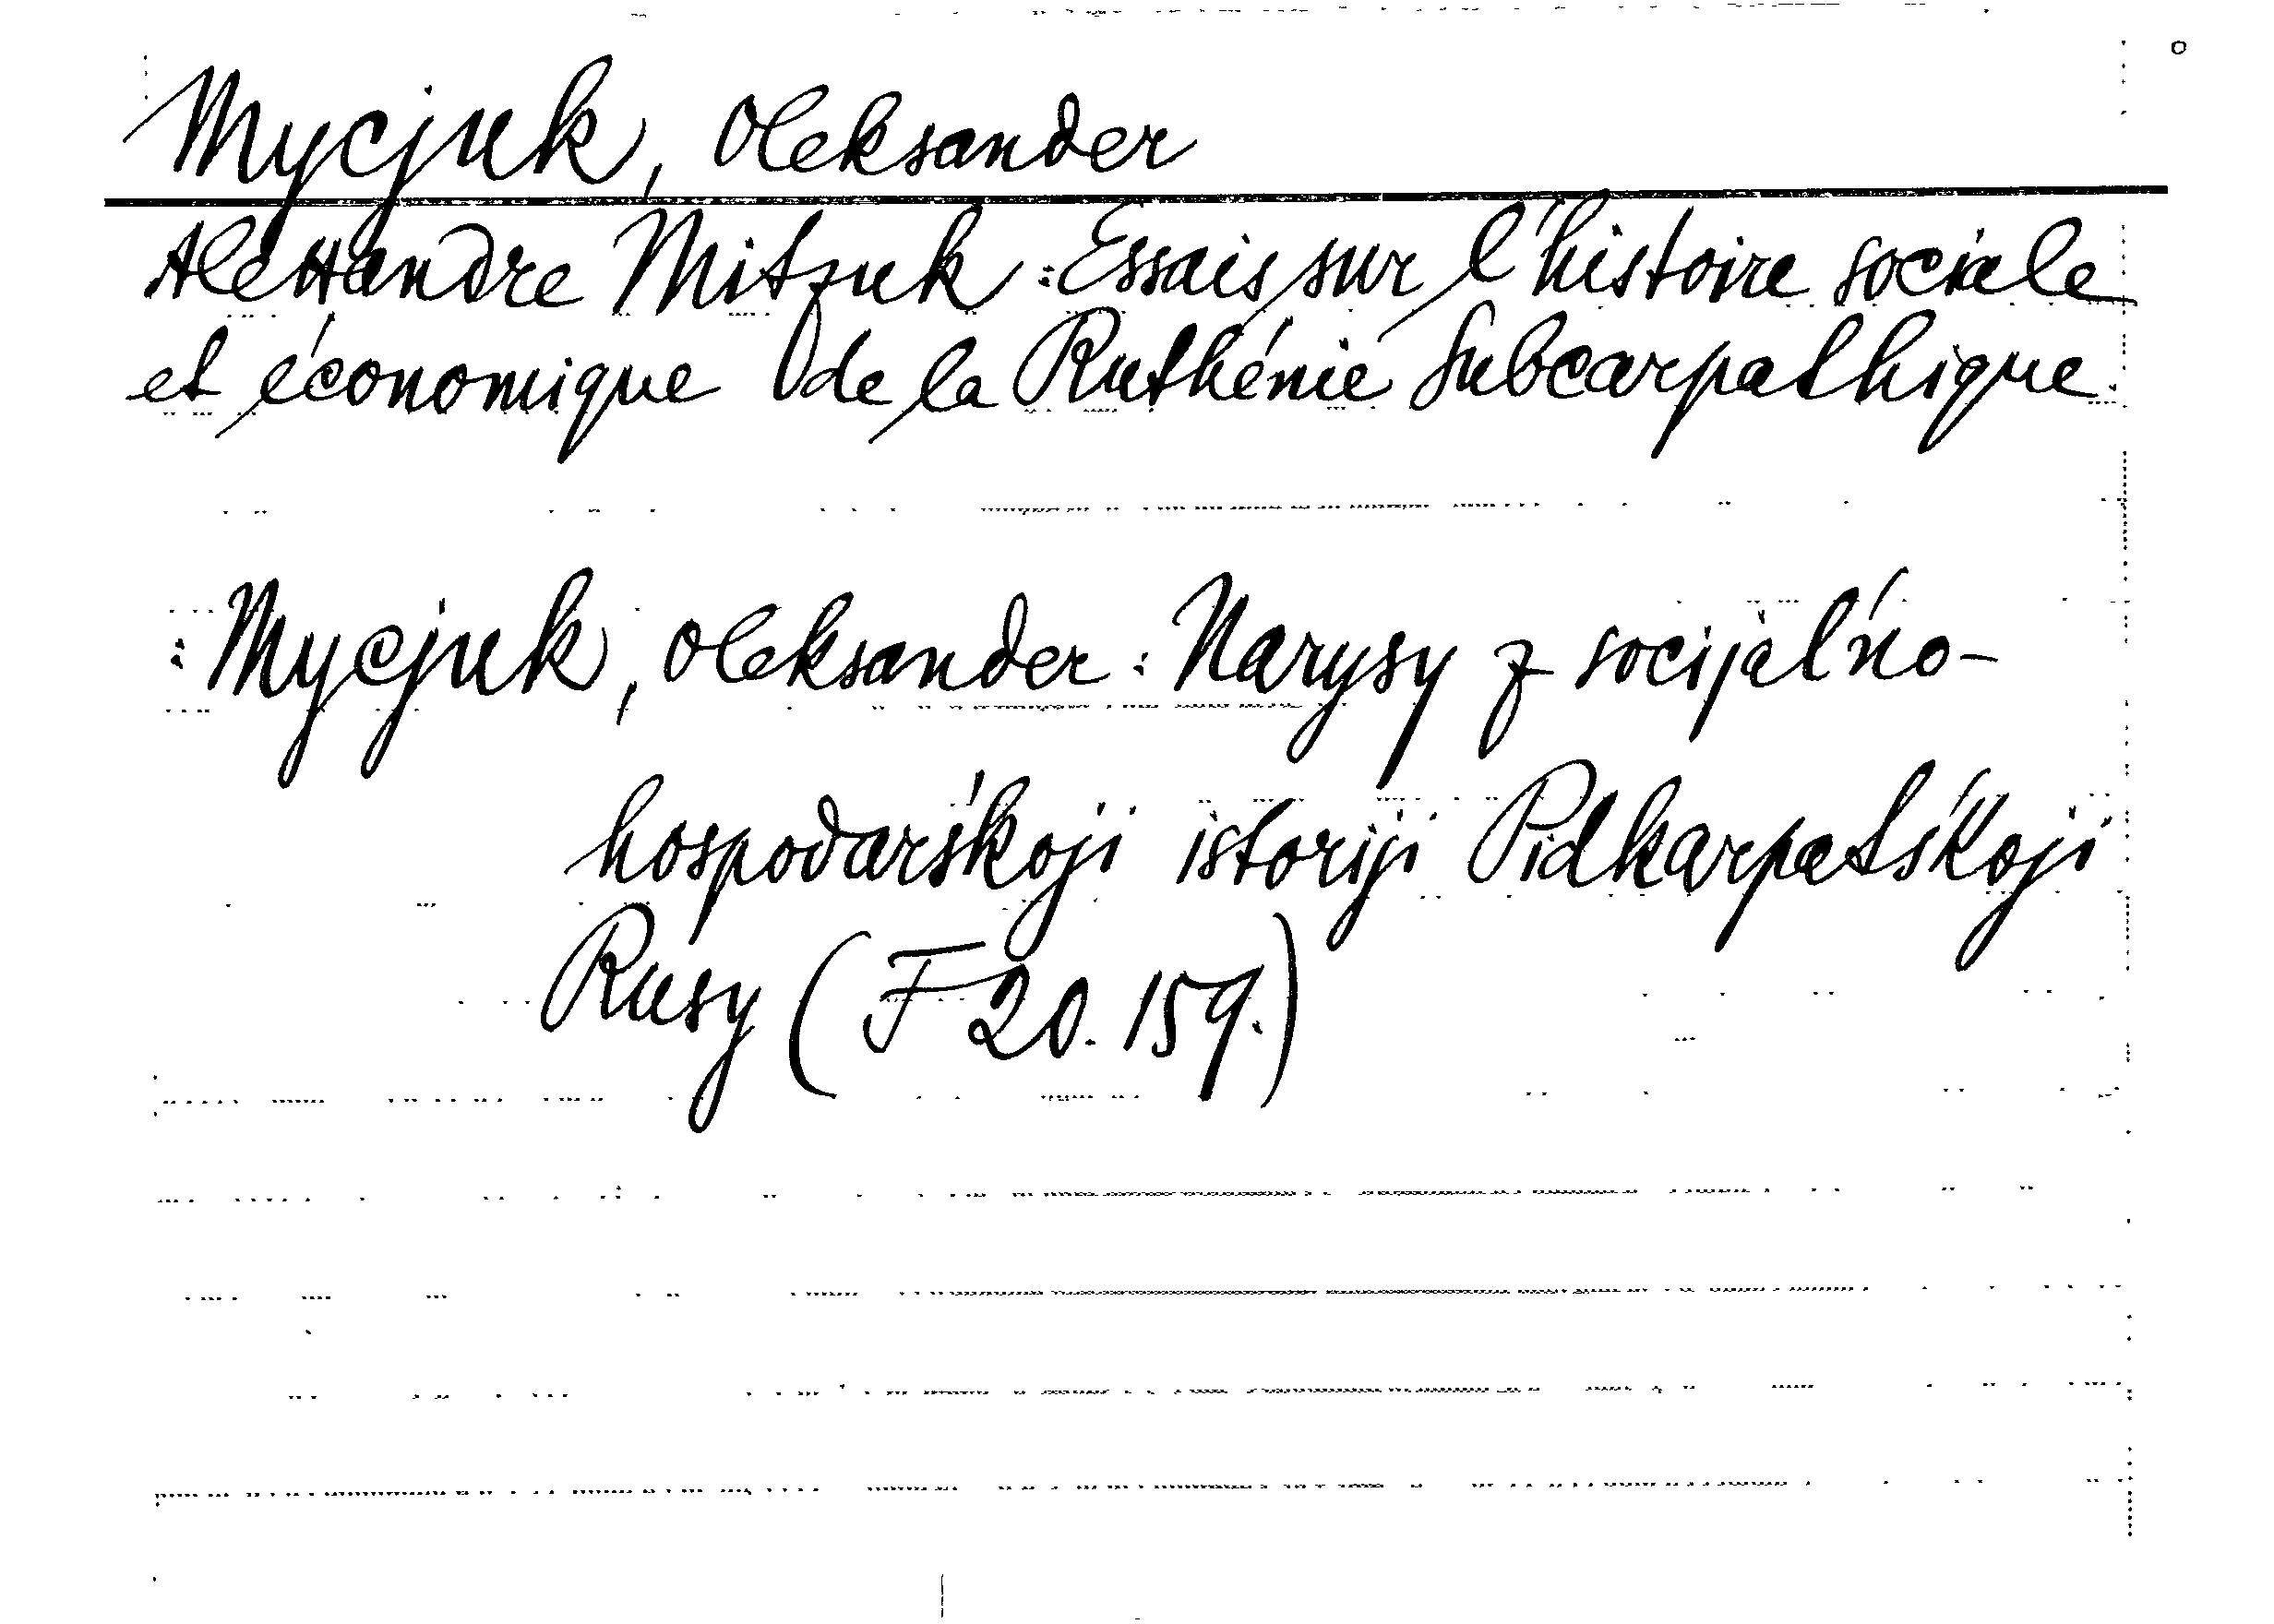 Mycjuk, Oleksander
Alexandre Mitzuk : Essais sur l'histoire sociale
et économique de la Ruthénie Subcarpathique.
: Mycjuk, Oleksander : Narysy z socijal'no-
hospodarśkoji istoriji Pidkarpatśkoji
Rusy (F 20.159.)